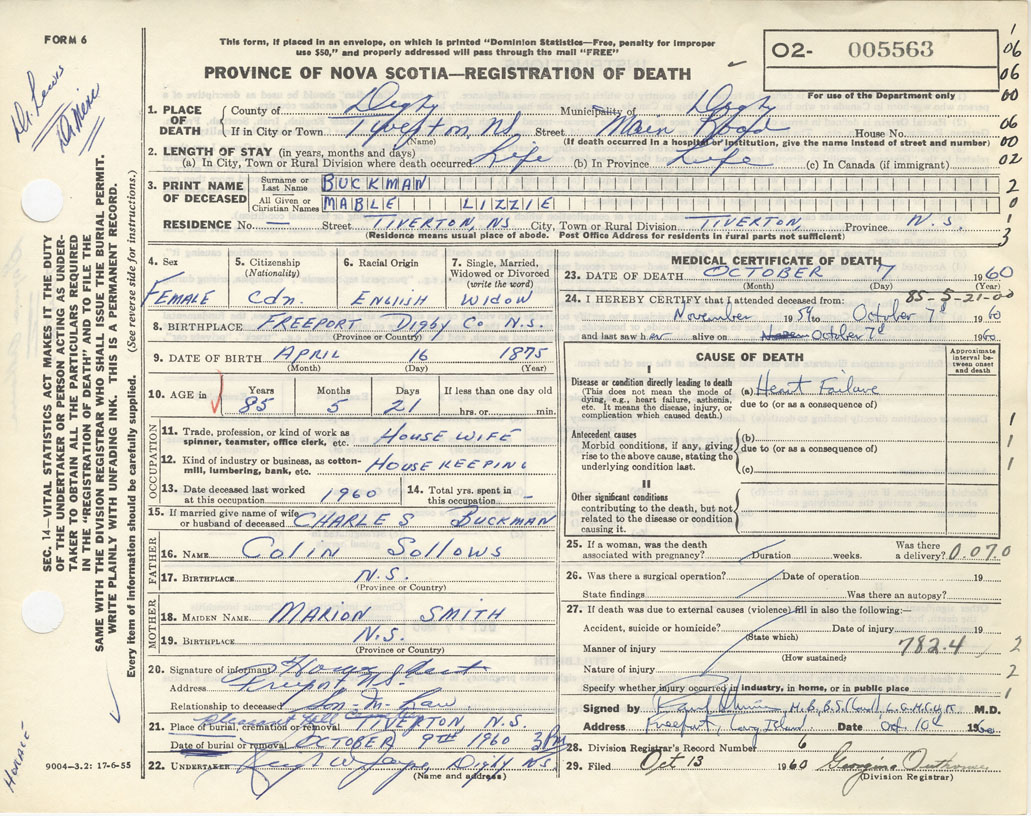 FORM 6
This form, if placed in an envelope, on which is printed "Dominion Statistics—Free, penalty for improper
use $50," and properly addressed will pass through the mail "FREE"
O2- 005563
For use of the Department only
PROVINCE OF NOVA SCOTIA—REGISTRATION OF DEATH
Dr. Lewis
SEC. 14—VITAL STATISTICS ACT MAKES IT THE DUTY
OF THE UNDERTAKER OR PERSON ACTING AS UNDER-
TAKER TO OBTAIN ALL THE PARTICULARS REQUIRED
IN THE "REGISTRATION OF DEATH" AND TO FILE THE
SAME WITH THE DIVISION REGISTRAR WHO SHALL ISSUE THE BURIAL PERMIT.
WRITE PLAINLY WITH UNFADING INK. THIS IS A PERMANENT RECORD.
Every item of information should be carefully supplied. (See reverse side for instructions.)
1. PLACE OF DEATH
County of Digby Municipality of Digby
If in City or Town Tiverton, NS. Street Main Road House No.
(Name) (If death occurred in a hospital or institution, give the name instead of street and number)
2. LENGTH OF STAY (in years, months and days)
(a) In City, Town or Rural Division where death occurred Life (b) In Province Life (c) In Canada (if immigrant)
3. PRINT NAME OF DECEASED
Surname or Last Name BUCKMAN
All Given or Christian Names MABLE LIZZIE
RESIDENCE No. — Street TIVERTON, NS City, Town or Rural Division TIVERTON, Province N.S.
(Residence means usual place of abode. Post Office Address for residents in rural parts not sufficient)
1
06
06
00
06
00
02
2
0
1
3
4. Sex FEMALE
5. Citizenship (Nationality) Cdn.
6. Racial Origin ENGLISH
7. Single, Married, Widowed or Divorced (write the word) WIDOW
8. BIRTHPLACE FREEPORT DIGBY Co N.S.
(Province or Country)
9. DATE OF BIRTH APRIL 16 1875
(Month) (Day) (Year)
10. AGE in Years 85 Months 5 Days 21 If less than one day old hrs. or min.
OCCUPATION
11. Trade, profession, or kind of work as spinner, teamster, office clerk, etc. HOUSE WIFE
12. Kind of industry or business, as cotton-mill, lumbering, bank, etc. HOUSE KEEPING
13. Date deceased last worked at this occupation 1960 14. Total yrs. spent in this occupation —
15. If married give name of wife or husband of deceased CHARLES BUCKMAN
FATHER
16. NAME Colin Sollows
17. BIRTHPLACE N.S.
(Province or Country)
MOTHER
18. MAIDEN NAME MARION SMITH
19. BIRTHPLACE N.S.
(Province or Country)
20. Signature of informant
Address Freeport N.S.
Relationship to deceased Son-in-Law
Pleasant Hill
21. Place of burial, cremation or removal TIVERTON, N.S.
Date of burial or removal OCTOBER 9TH 1960 3 PM
22. UNDERTAKER Digby NS
(Name and address)
9004—3.2: 17-6-55
MEDICAL CERTIFICATE OF DEATH
23. DATE OF DEATH OCTOBER 7 1960
(Month) (Day) (Year)
24. I HEREBY CERTIFY that I attended deceased from: 85-5-21-00
November 1959 to October 7th 1960
and last saw her alive on October 7th 1960
CAUSE OF DEATH
Approximate interval between onset and death
I
Disease or condition directly leading to death
(This does not mean the mode of dying, e.g., heart failure, asthenia, etc. It means the disease, injury, or complication which caused death.)
(a) Heart Failure
due to (or as a consequence of)
Antecedent causes
Morbid conditions, if any, giving rise to the above cause, stating the underlying condition last.
(b)
due to (or as a consequence of)
(c)
1
1
1
II
Other significant conditions
contributing to the death, but not related to the disease or condition causing it.
25. If a woman, was the death associated with pregnancy? Duration weeks. Was there a delivery? 0.070
26. Was there a surgical operation? Date of operation 19
State findings Was there an autopsy?
27. If death was due to external causes (violence) fill in also the following:—
Accident, suicide or homicide? Date of injury 19
(State which)
Manner of injury 782.4 2
(How sustained)
Nature of injury 2
Specify whether injury occurred in industry, in home, or in public place 1
Signed by M.D.
Address Freeport, Long Island Date Oct 10th 1960
28. Division Registrar's Record Number 6
29. Filed Oct 13 1960 Georgina Outhouse
(Division Registrar)